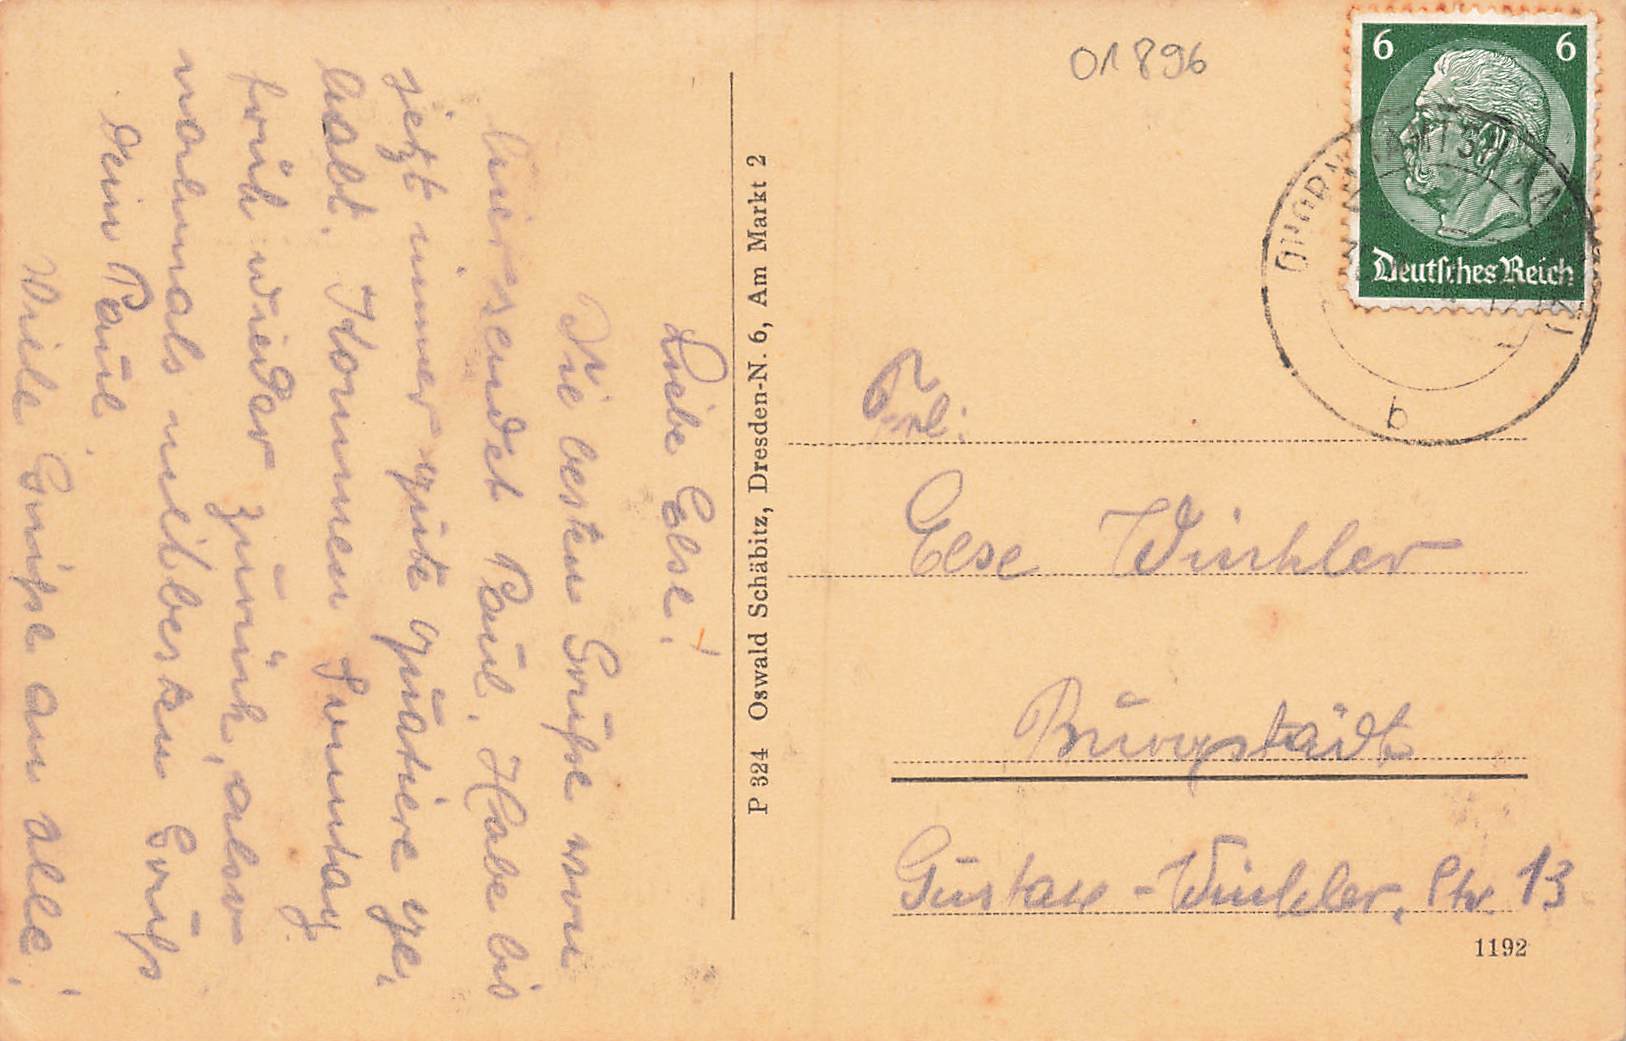 Liebe Else!
Die besten Grüße von
hier sendet Paul. Habe bis
jetzt immer gute Quatiere ge,
habt. Kommen Sonntag
früh wieder zurück, also
nochmals mit besten Gruß
Dein Paul.
Viele Grüße an Alle!
P 324 Oswald Schäbitz, Dresden-N. 6, Am Markt 2
01896
6 6
Deutsches Reich
b
Frl:
Else Winkler
Burgstädt
Gustav-Winkler, Str. 13
1192